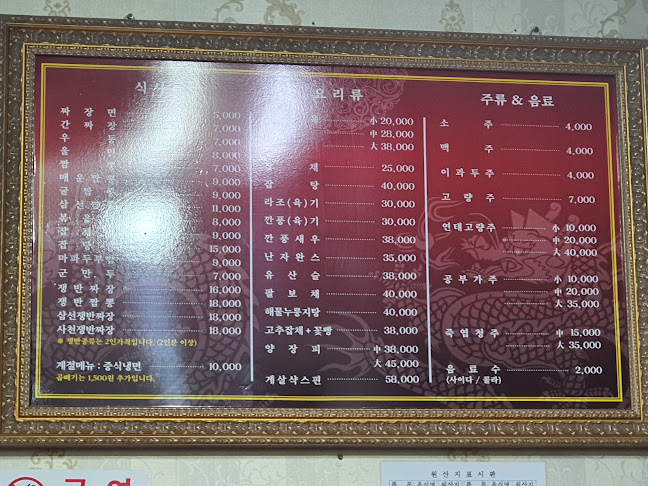 식사
짜 장 면 5,000
간 짜 장 7,000
우 동 7,000
울 면 7,000
짬 8,000
매 운 짬 9,000
굴 짬 9,000
삼 선 짬 11,000
볶 음 8,000
잡 9,000
잡 탕 15,000
마파두부밥 9,000
군 만 두 7,000
쟁반짜장 16,000
쟁반짬뽕 18,000
삼선쟁반짜장 18,000
사천쟁반짜장 18,000
※ 쟁반종류는 2인가격입니다. (2인분 이상)
계절메뉴 : 중식냉면 10,000
곱빼기는 1,500원 추가입니다.
요리류
小 20,000
中 28,000
大 38,000
채 25,000
잡 탕 40,000
라조(육)기 30,000
깐풍(육)기 30,000
깐풍새우 38,000
난자완스 35,000
유 산 슬 38,000
팔 보 채 40,000
해물누룽지탕 40,000
고추잡채+꽃빵 38,000
양 장 피 中 38,000
大 45,000
게살샥스핀 58,000
주류 & 음료
소 주 4,000
맥 주 4,000
이과두주 4,000
고 량 주 7,000
연태고량주 小 10,000
中 20,000
大 40,000
공부가주 小 10,000
中 20,000
大 35,000
죽엽청주 中 15,000
大 35,000
음 료 수 2,000
(사이다 / 콜라)
금 연
원산지표시판
품 목 음식명 원산지 품 목 음식명 원산지